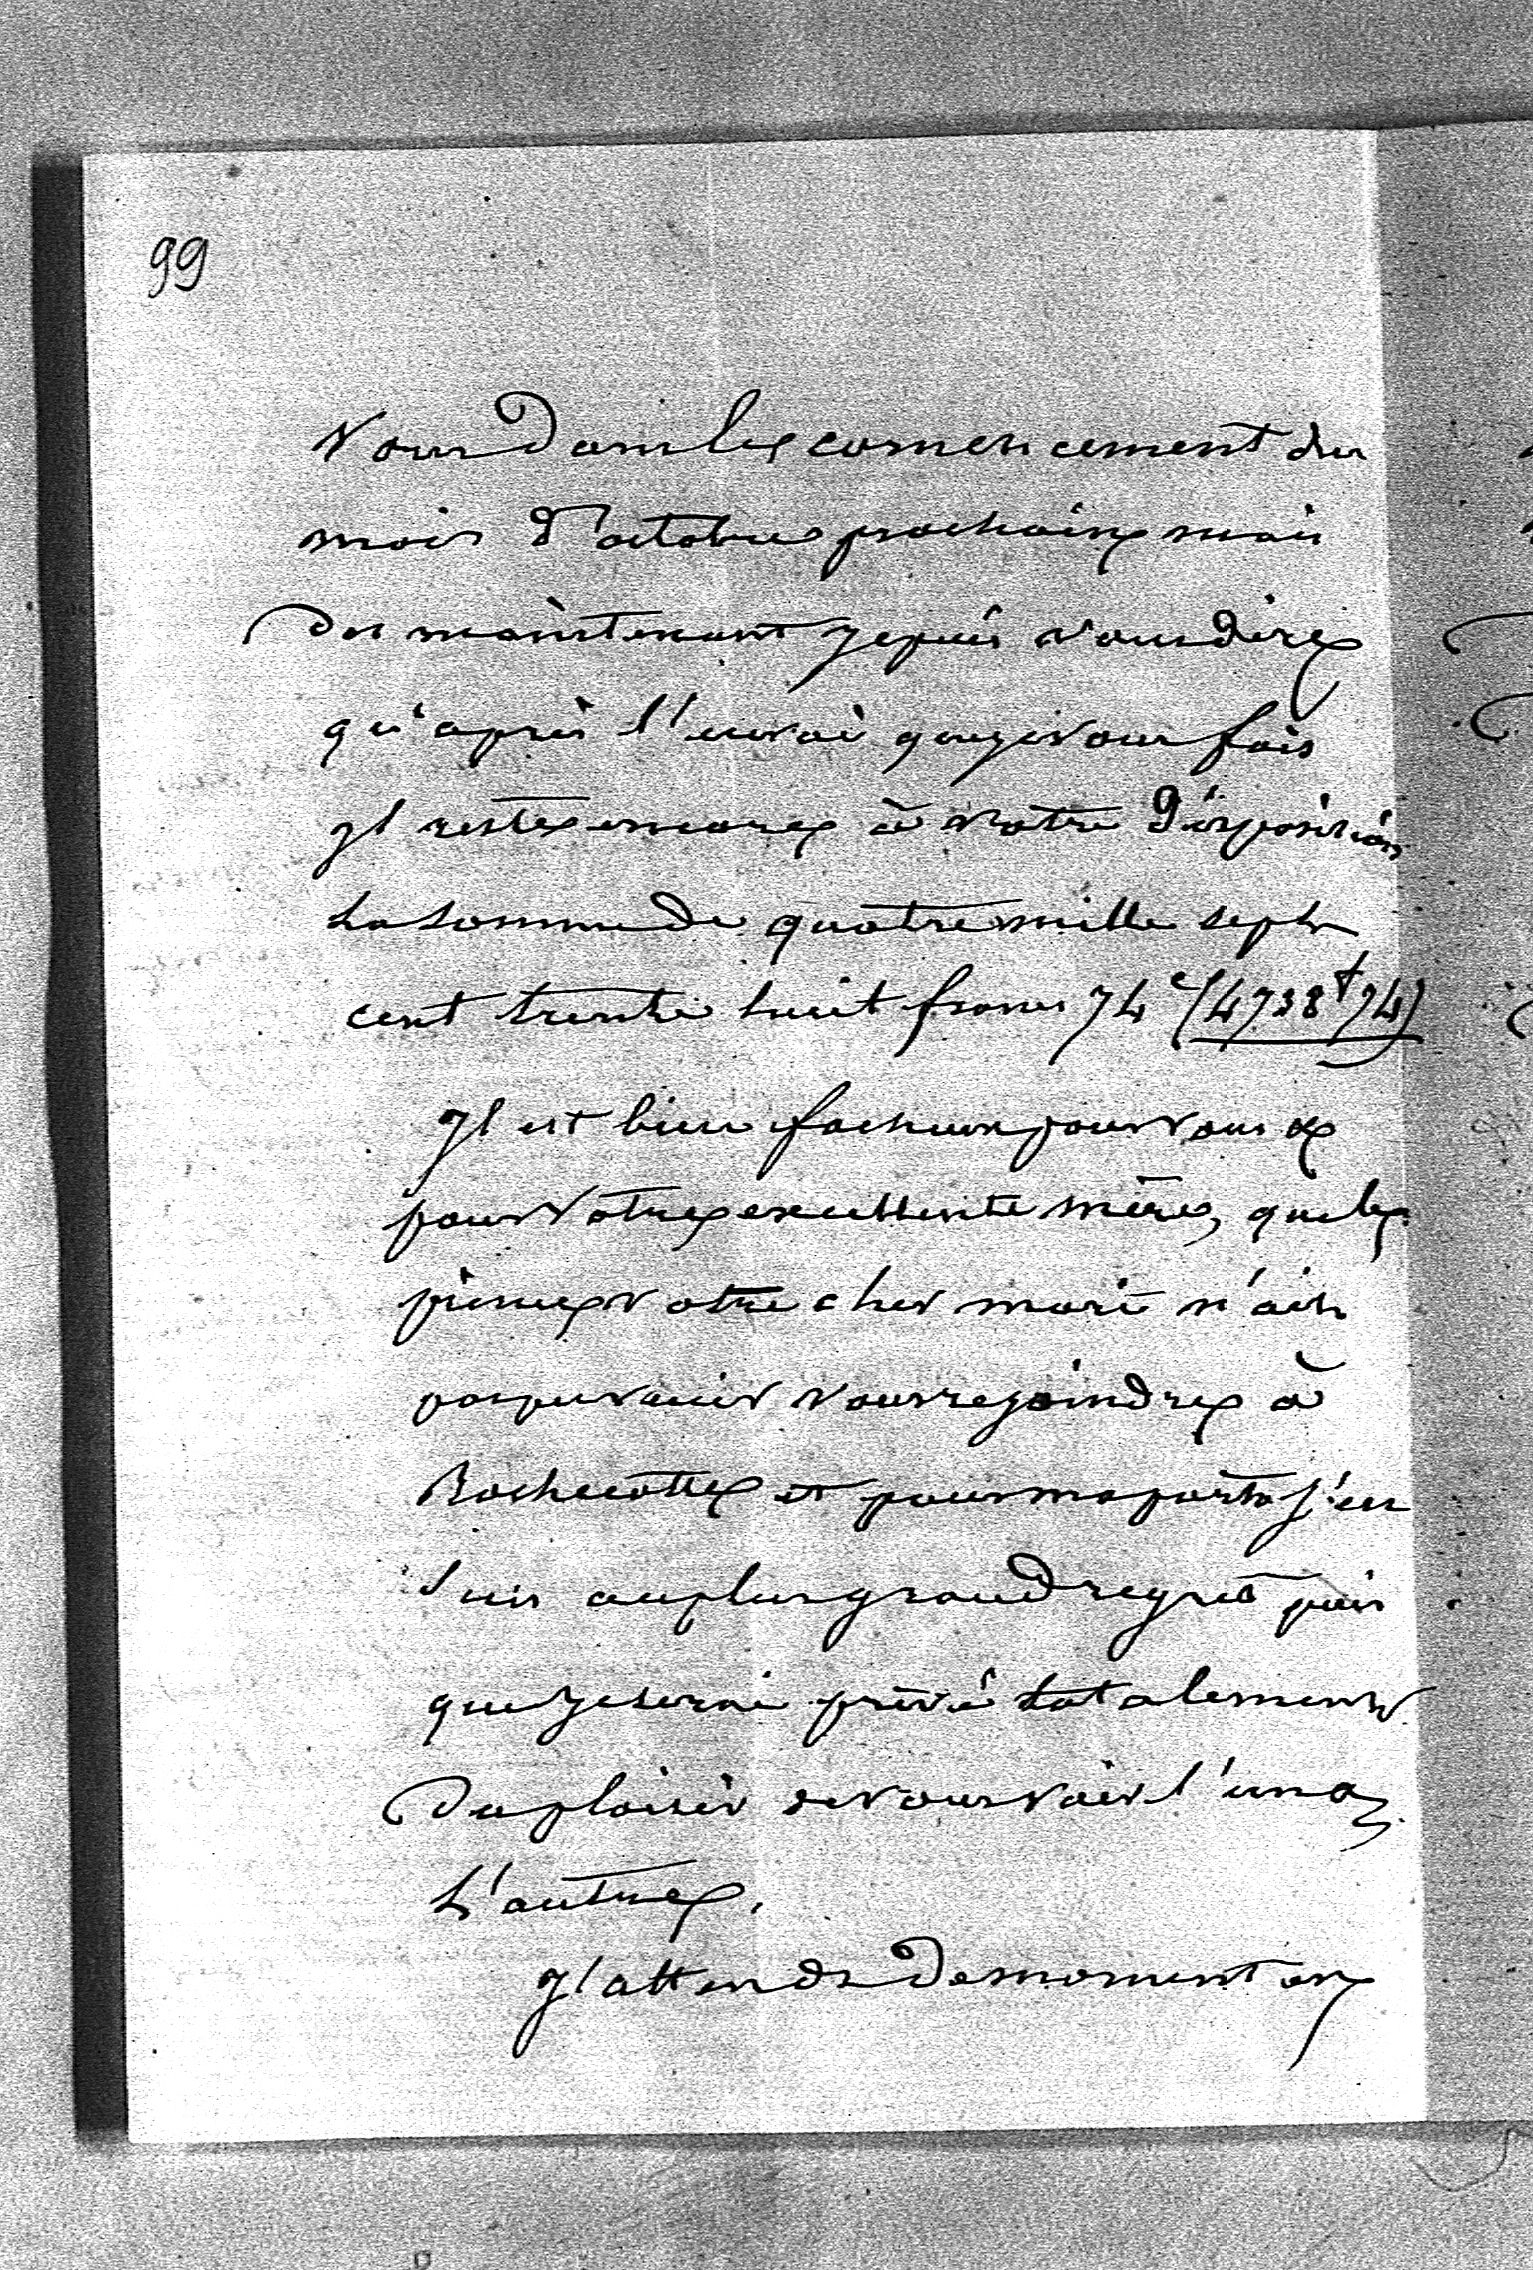 99
Vous dans le commencement du
mois d'octobre prochain mais
des maintenant je puis vous dire
qu'après l'envoi que je vous fais
Jl reste encore à votre disposition
La somme de quatre mille sept
cent trente huit francs 74 c (4738f 74)
Jl est bien facheux pour vous &
pour votre excellente mère, que le
prince votre cher mari n'ait
pas pu venir vous rejoindre à
Rochecotte et pour ma part j'en
suis au plus grand regret puis
que je serai privé totalement
du plaisir de vous voir l'un &
L'autre.
J'attends de moment en